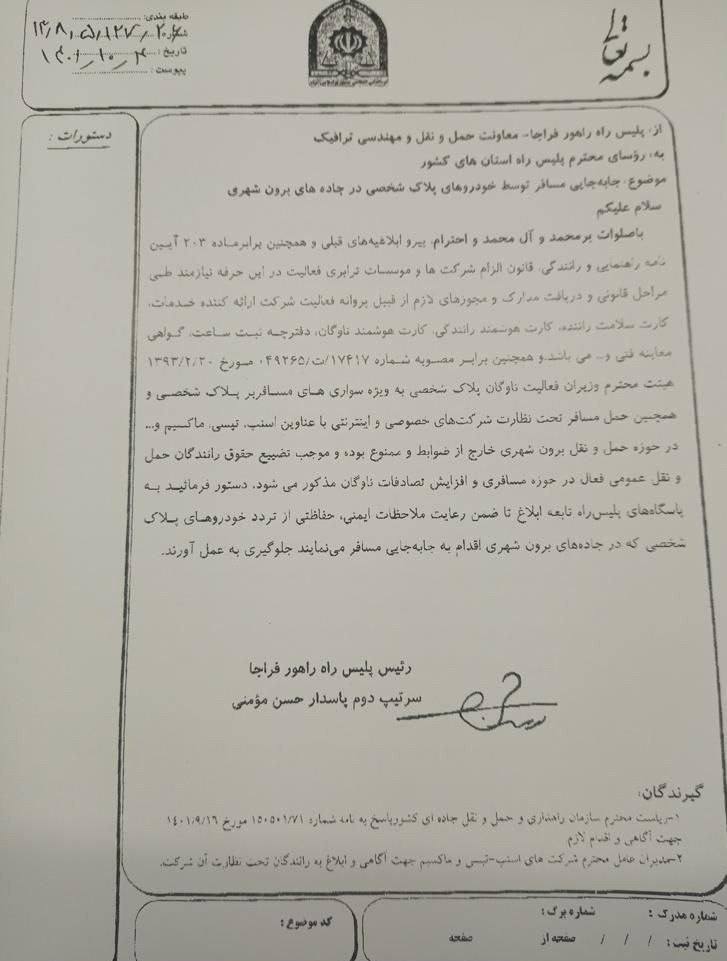 بسمه تعالی
طبقه بندی:
شماره
تاریخ: ۱۴۰۱/۱۰/۴
پیوست:
دستورات:
از: پلیس راه راهور فراجا- معاونت حمل و نقل و مهندسی ترافیک
به: رؤسای محترم پلیس راه استان های کشور
موضوع: جابه‌جایی مسافر توسط خودروهای پلاک شخصی در جاده های برون شهری
سلام علیکم
باصلوات برمحمد و آل محمد و احترام، پیرو ابلاغیه‌های قبلی و همچنین برابرماده ۲۰۳ آیین
نامه راهنمایی و رانندگی، قانون الزام شرکت ها و موسسات ترابری فعالیت در این حرفه نیازمند طی
مراحل قانونی و دریافت مدارک و مجوزهای لازم از قبیل پروانه فعالیت شرکت ارائه کننده خدمات،
کارت سلامت راننده، کارت هوشمند رانندگی، کارت هوشمند ناوگان، دفترچه ثبت ساعت، گواهی
معاینه فنی و... می باشد.و همچنین برابر مصوبه شماره ۱۷۴۱۷/ت۰۴۹۲۶۵/ مورخ ۱۳۹۳/۲/۲۰
هیئت محترم وزیران فعالیت ناوگان پلاک شخصی به ویژه سواری های مسافربر پلاک شخصی و
همچنین حمل مسافر تحت نظارت شرکت‌های خصوصی و اینترنتی با عناوین اسنپ، تپسی، ماکسیم و...
در حوزه حمل و نقل برون شهری خارج از ضوابط و ممنوع بوده و موجب تضییع حقوق رانندگان حمل
و نقل عمومی فعال در حوزه مسافری و افزایش تصادفات ناوگان مذکور می شود، دستور فرمائید به
پاسگاه‌های پلیس‌راه تابعه ابلاغ تا ضمن رعایت ملاحظات ایمنی، حفاظتی از تردد خودروهای پلاک
شخصی که در جاده‌های برون شهری اقدام به جابه‌جایی مسافر می‌نمایند جلوگیری به عمل آورند.
رئیس پلیس راه راهور فراجا
سرتیپ دوم پاسدار حسن مؤمنی
گیرندگان:
۱-ریاست محترم سازمان راهداری و حمل و نقل جاده ای کشورپاسخ به نامه شماره ۱۵۰۵۰۱/۷۱ مورخ ۱۴۰۱/۹/۱۶
جهت آگاهی و اقدام لازم
۲-مدیران عامل محترم شرکت های اسنپ-تپس و ماکسیم جهت آگاهی و ابلاغ به رانندگان تحت نظارت آن شرکت.
شماره مدرک : شماره برگ :
تاریخ ثبت : / / / صفحه از صفحه
کد موضوع :